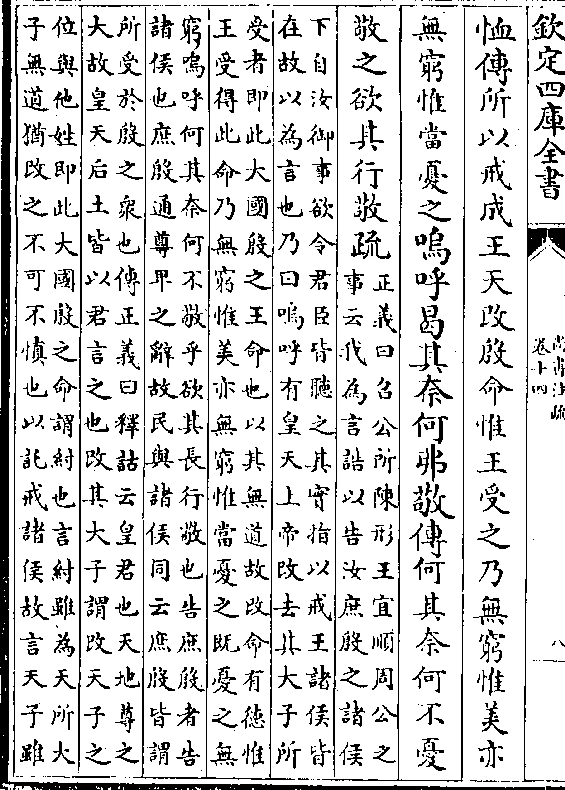 欽定四庫全書
尚書注疏
卷十四
八
恤傳所以戒成王天改殷命惟王受之乃無窮惟美亦
無窮惟當憂之嗚呼曷其奈何弗敬傳何其奈何不憂
敬之欲其行敬疏
正義曰召公所陳形王宜順周公之
事云我為言誥以告汝庶殷之諸侯
下自汝御事欲令君臣皆聽之其實指以戒王諸侯皆
在故以為言也乃曰嗚呼有皇天上帝改去其大子所
受者即此大國殷之王命也以其無道故改命有德惟
王受得此命乃無窮惟美亦無窮惟當憂之既憂之無
窮嗚呼何其奈何不敬乎欲其長行敬也告庶殷者告
諸侯也庶殷通尊卑之辭故民與諸侯同云庶殷皆謂
所受於殷之衆也傳正義曰釋詁云皇君也天地尊之
大故皇天后土皆以君言之也改其大子謂改天子之
位與他姓即此大國殷之命謂紂也言紂雖為天所大
子無道猶改之不可不慎也以託戒諸侯故言天子雖